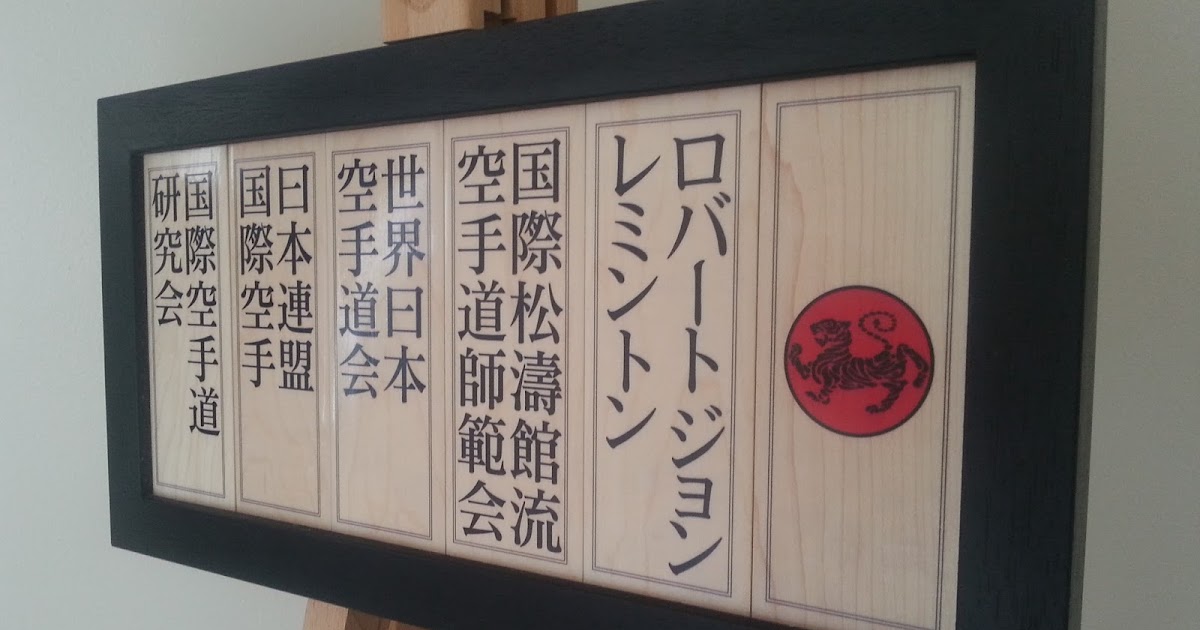 ロバートジョン
レミントン
国際松濤館流
空手道師範会
世界日本
空手道会
日本連盟
国際空手
国際空手道
研究会